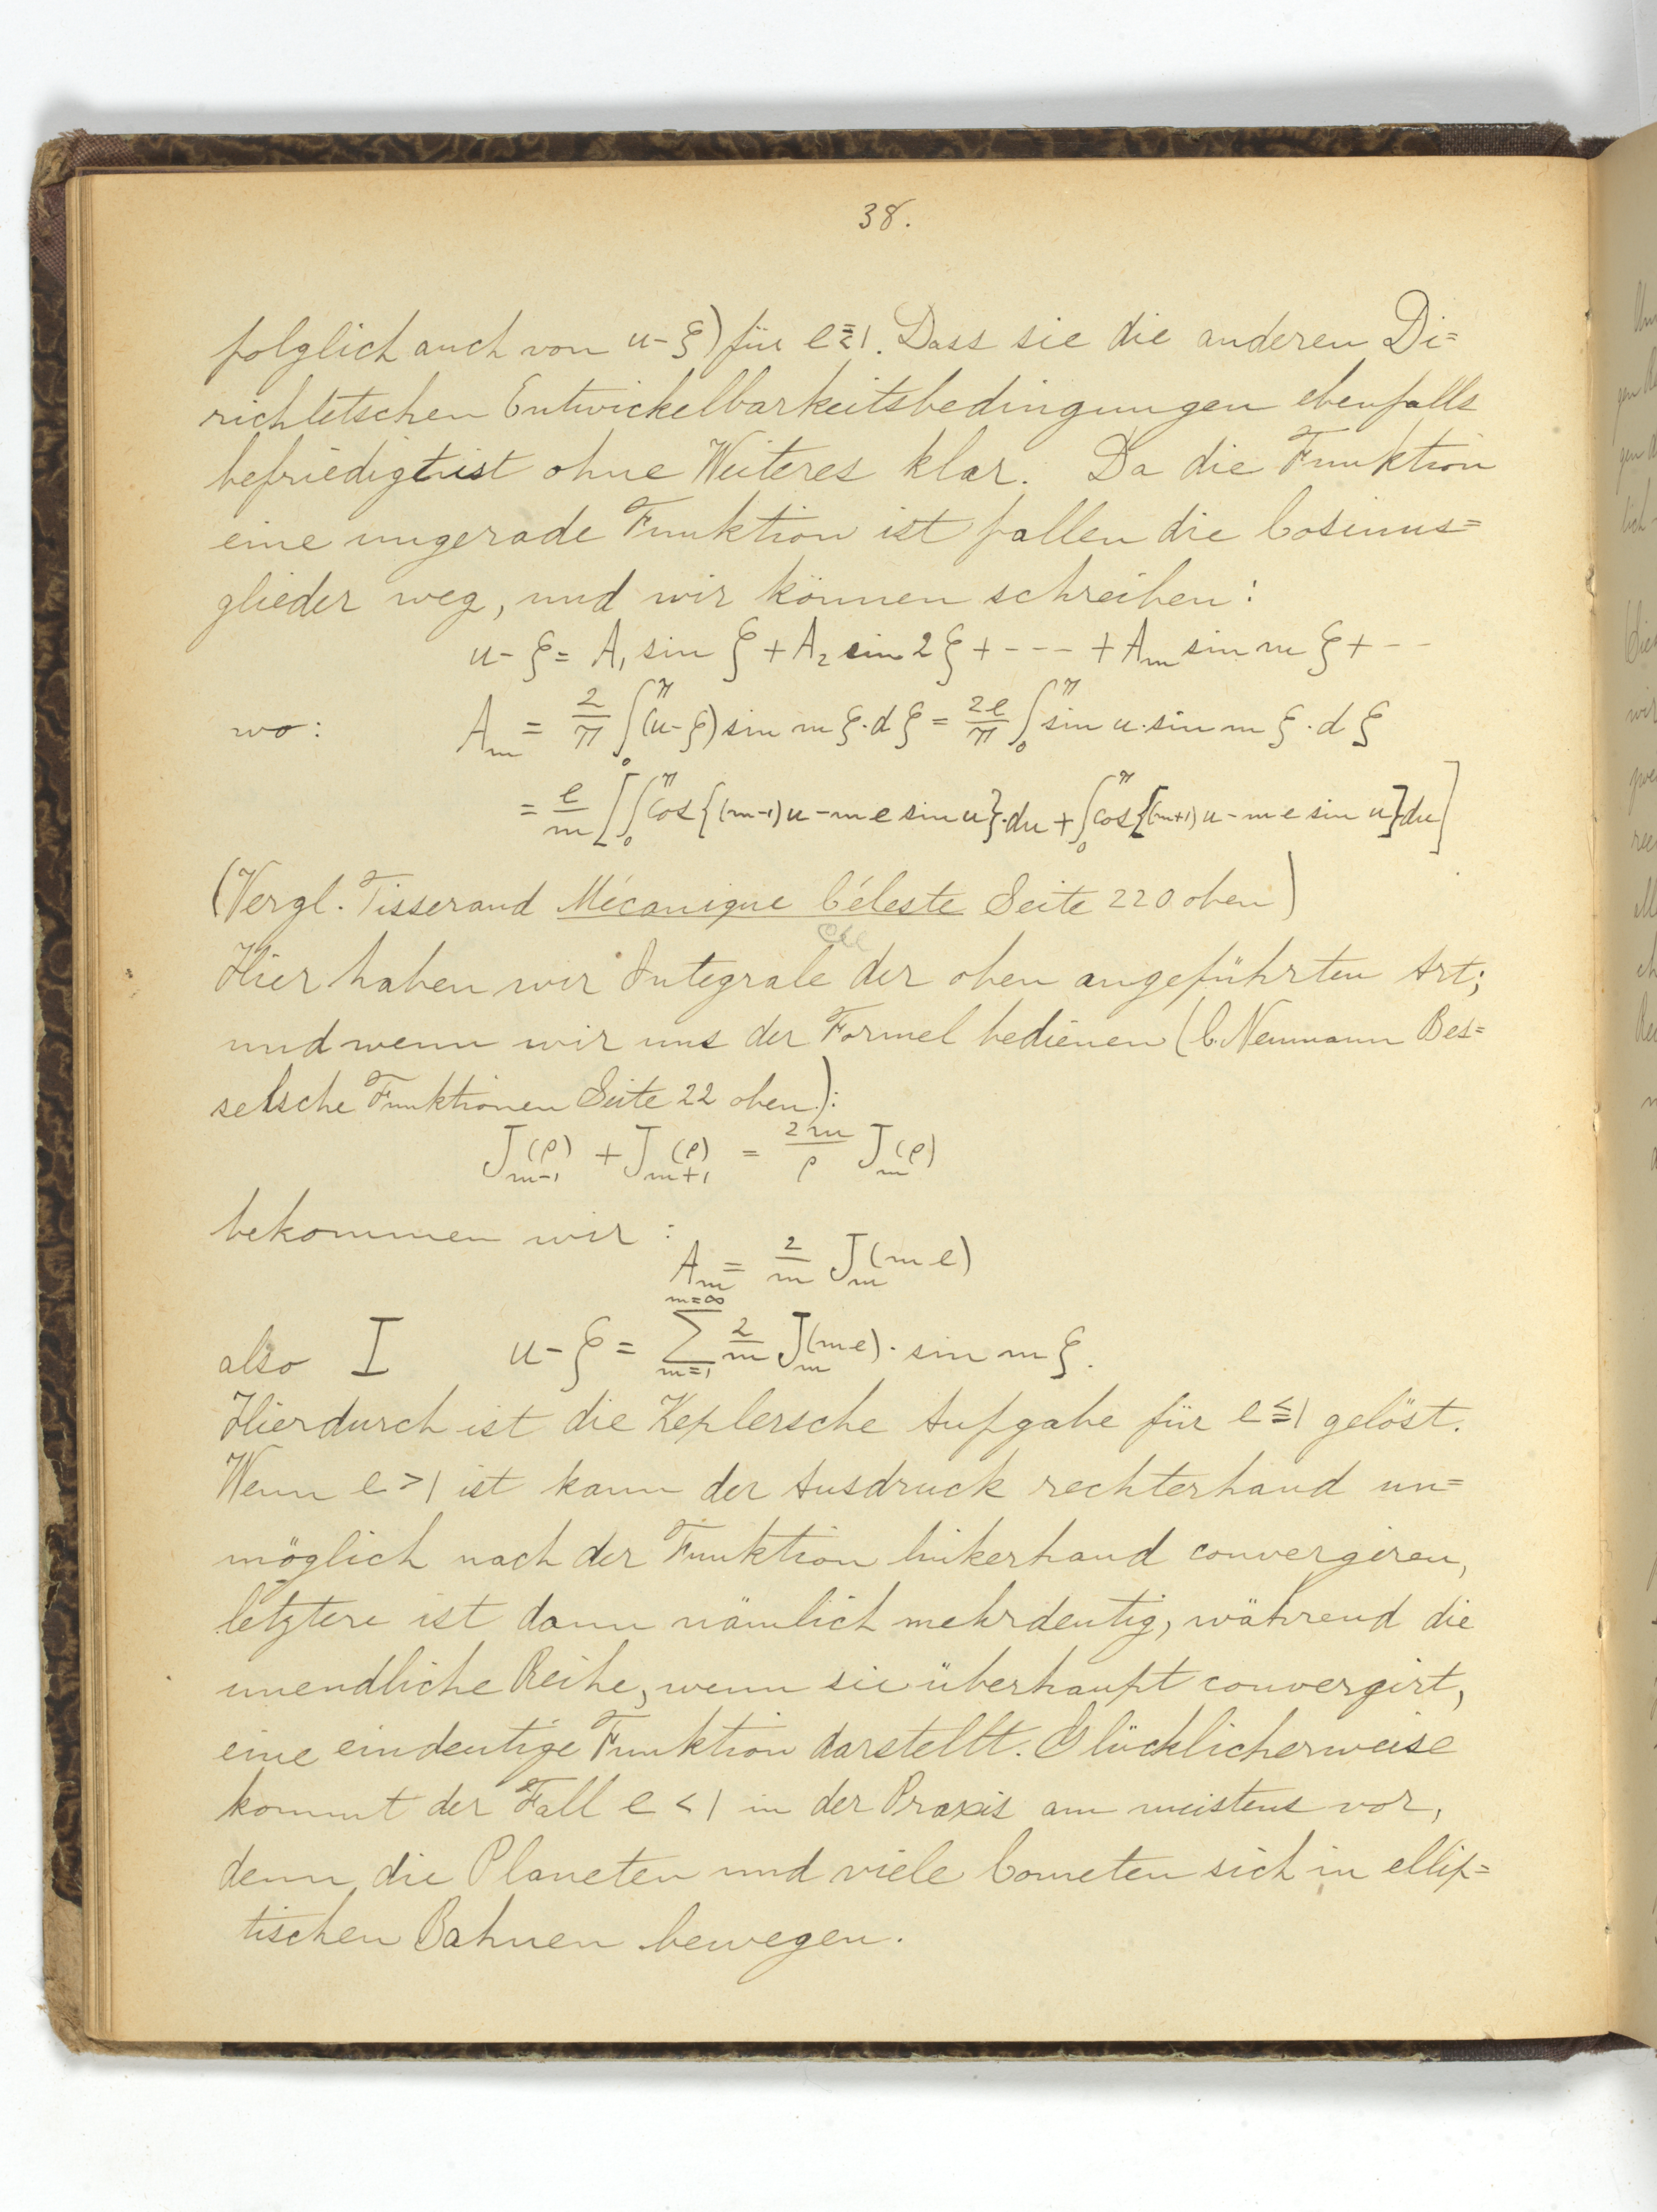 38.
folglich auch von u-ξ) für e≦1. Dass sie die anderen Di=
richletschen Entwickelbarkeitsbedingungen ebenfalls
befriedigt ist ohne Weiteres klar. Da die Funktion
eine ungerade Funktion ist fallen die Cosinus=
glieder weg, und wir können schreiben:
u-ξ = A₁ sin ξ + A₂ sin 2ξ + --- + Aₘ sin m ξ + --
wo: Aₘ = 2/π ∫₀^π (u-ξ) sin m ξ·dξ = 2e/π ∫₀^π sin u·sin m ξ·dξ
= e/m [∫₀^π cos{(m-1)u - m e sin u}·du + ∫₀^π cos{(m+1)u - m e sin u}du]
(Vergl. Tisserand Mécanique Céleste Seite 220 oben)
Hier haben wir Integrale der oben angeführten Art;
und wenn wir uns der Formel bedienen (C. Neumann Bes=
selsche Funktionen Seite 22 oben):
J_{m-1}(ρ) + J_{m+1}(ρ) = 2m/ρ J_m(ρ)
bekommen wir:
Aₘ = 2/m J_m(m e)
also I u-ξ = ∑_{m=1}^{m=∞} 2/m J_m(m e)· sin m ξ.
Hierdurch ist die Keplersche Aufgabe für e≦1 gelöst.
Wenn e>1 ist kann der Ausdruck rechterhand un=
möglich nach der Funktion linkerhand convergiren,
letztere ist dann nämlich mehrdeutig, während die
unendliche Reihe, wenn sie überhaupt convergirt,
eine eindeutige Funktion darstellt. Glücklicherweise
kommt der Fall e<1 in der Praxis am meistens vor,
denn die Planeten und viele Cometen sich in ellip=
tischen Bahnen bewegen.